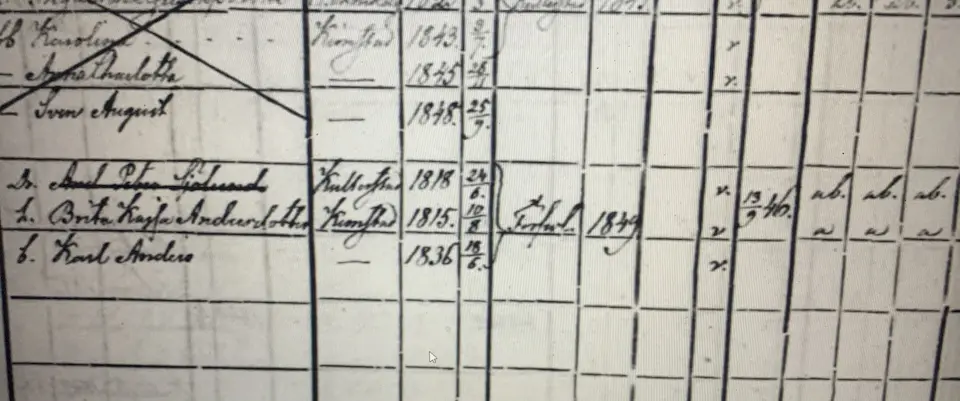 Karolina - - - - - Kimstad 1843 2/7. v
— Anna Charlotta — 1845 28/11 v.
— Sven August — 1848. 25/9.
Dr. Axel Peter Sjölund Kullerstad 1818 24/6. v. 13/9 46. ab. ab. ab.
h. Brita Kajsa Andersdotter Kimstad 1815. 10/8 1849 v a a a
b. Karl Anders — 1836 18/6. v.